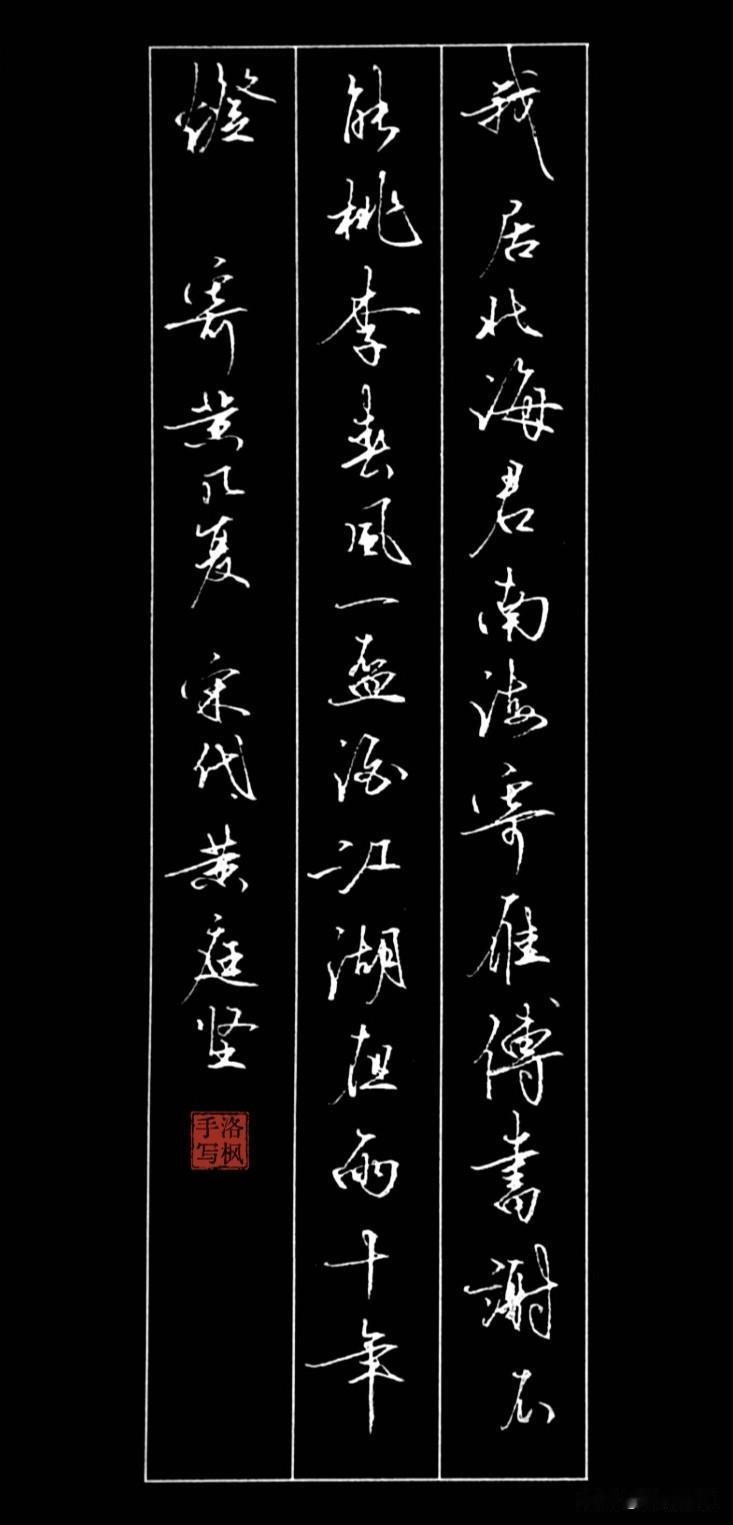 我居北海君南海寄雁傳書謝不
能桃李春風一盃酒江湖夜雨十年
燈 寄黄几复 宋代黄庭坚
洛枫
手写